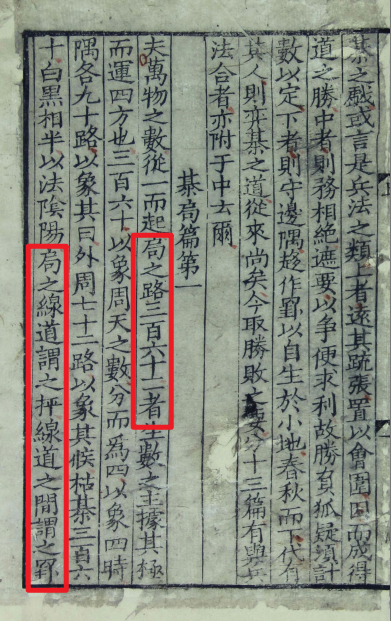 棊之戲或言是兵法之類上者遠其䟽張置以會圍因而成得
道之勝中者則務相絶遮要以爭便求利故勝負狐疑須計
數以定下者則守邊隅趍作罫以自生於小地春秋而下代有
其人則奕棊之道從來尚矣今取勝敗之要分十三篇有與兵
法合者亦附于中云爾
棊局篇第一
夫萬物之數從一而起局之路三百六十二者生數之主據其極
而運四方也三百六十以象周天之數分而爲四以象四時
隅各九十路以象其日外周七十二路以象其候枯棊三百六
十白黑相半以法陰陽局之線道謂之枰線道之間謂之罫